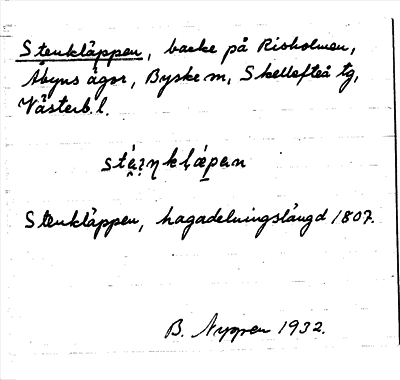 Stenkläppen, backe på Risholmen,
Åbyns ägor, Byske sn, Skellefteå tg,
Västerb. l.
Stenkläppen, hagadelningslängd 1807.
B. Nyppen 1932.